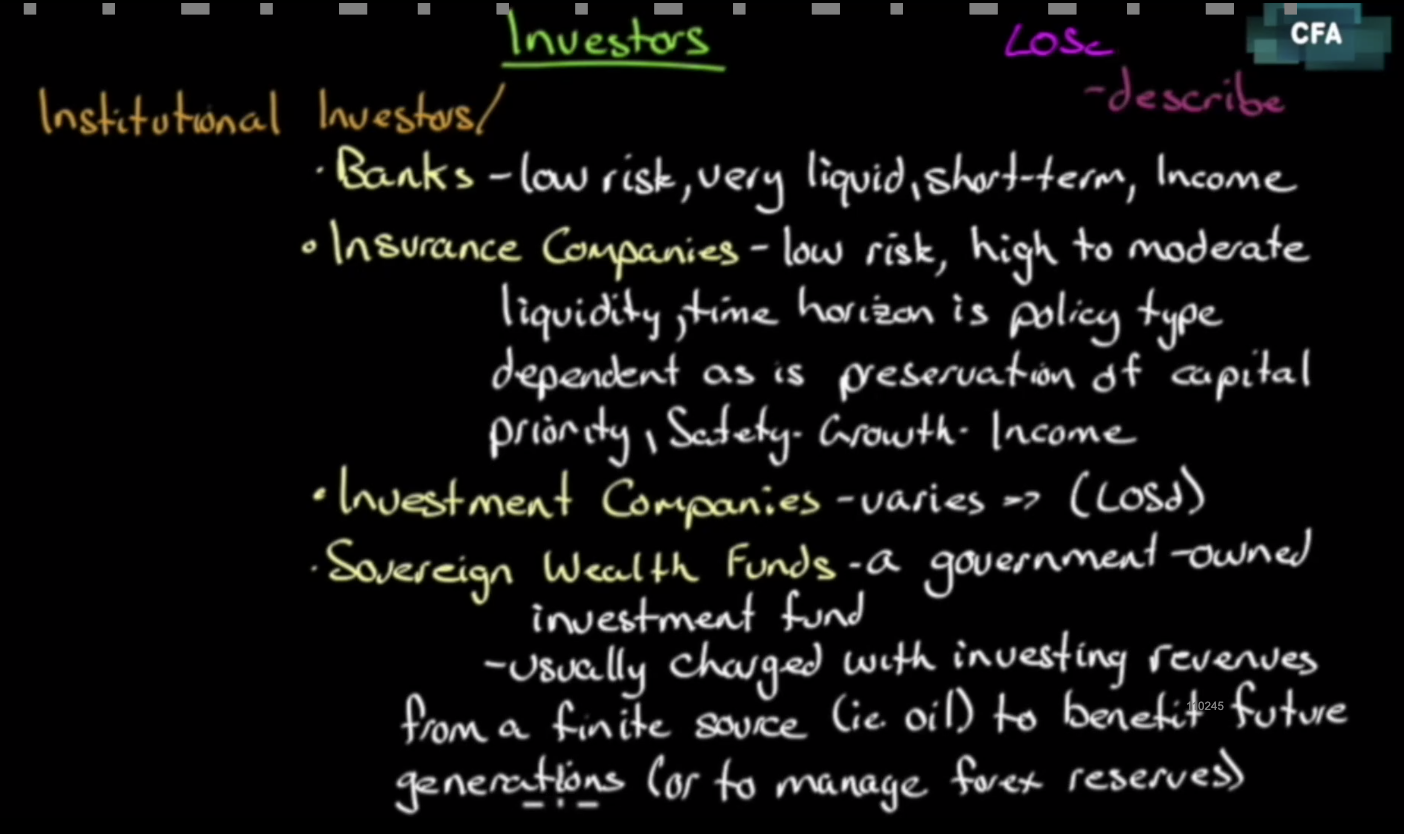 Investors
LOSc
CFA
-describe
Institutional Investors/
· Banks - low risk, very liquid, short-term, Income
· Insurance Companies - low risk, high to moderate
liquidity, time horizon is policy type
dependent as is preservation of capital
priority, Safety- Growth- Income
· Investment Companies - varies => (LOSd)
· Sovereign Wealth Funds - a government-owned
investment fund
- usually charged with investing revenues
from a finite source (ie. oil) to benefit future
110245
generations (or to manage forex reserves)